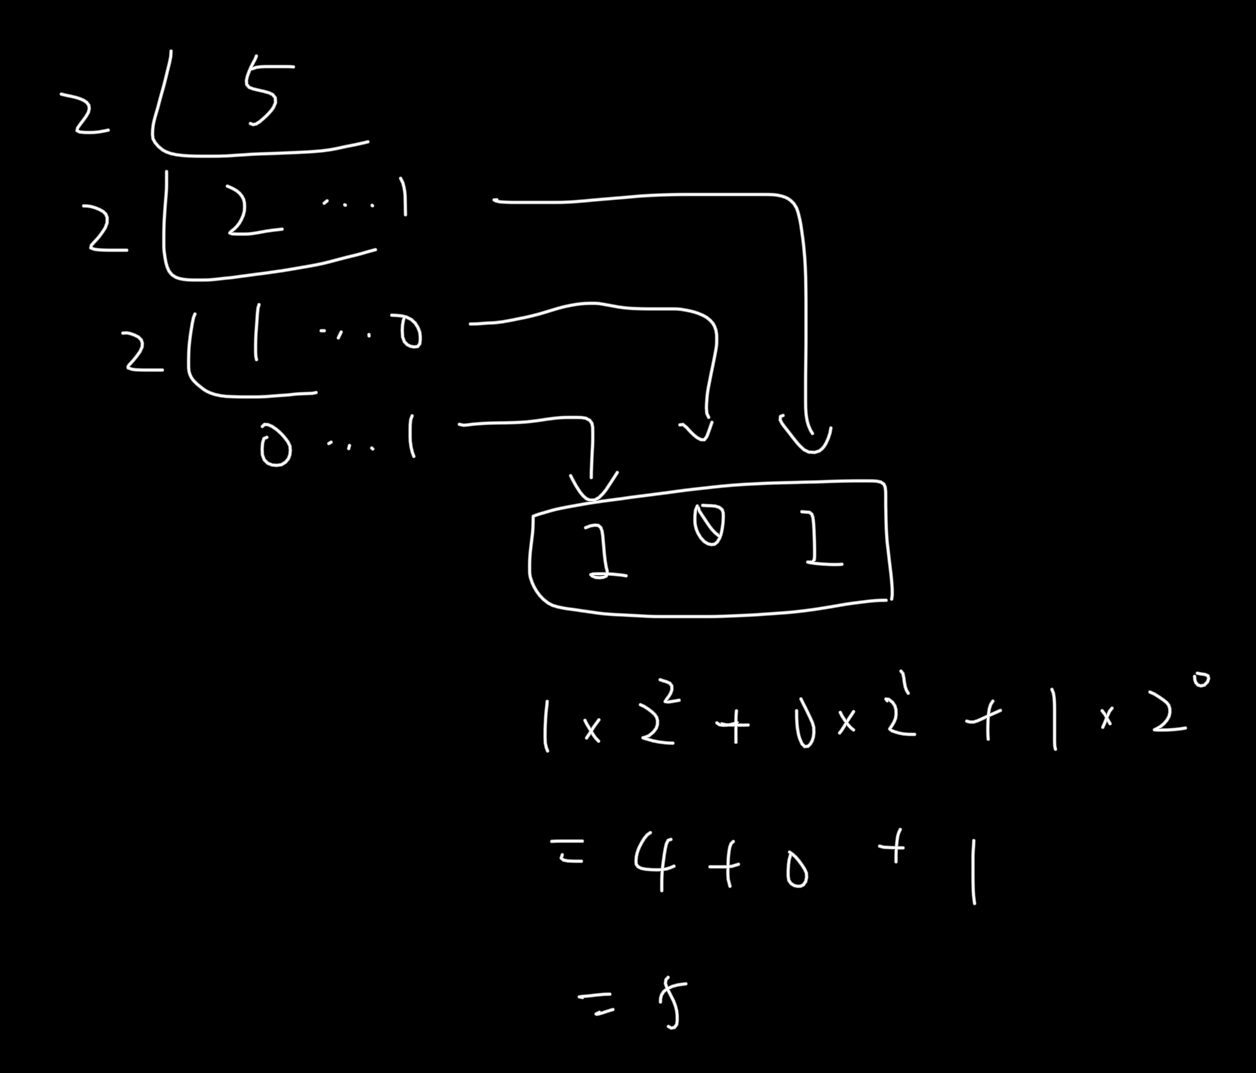 2 5
2 2 ... 1
2 1 ... 0
0 ... 1
1 0 1
1 × 2² + 0 × 2¹ + 1 × 2⁰
= 4 + 0 + 1
= 5